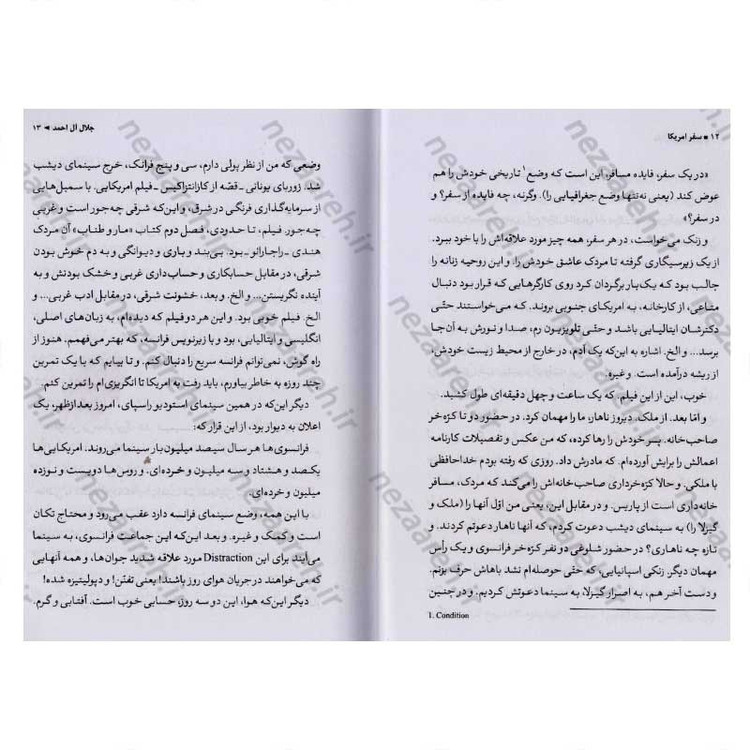 ۱۲ ■ سفر امریکا
«در یک سفر، فایده مسافر، این است که وضع۱ تاریخی خودش را هم
عوض کند (یعنی نه‌تنها وضع جغرافیایی را). وگرنه، چه فایده از سفر؟ و
در سفر؟»
و زنک می‌خواست، در هر سفر، همه چیز مورد علاقه‌اش را با خود ببرد.
از یک زیرسیگاری گرفته تا مردک عاشق خودش را. و این روحیه زنانه را
جالب بود که یک‌بار برگردان کرد روی کارگرهایی که قرار بود دنبال
متاعی، از کارخانه، به امریکای جنوبی بروند. که می‌خواستند حتّی
دکترشان ایتالیایی باشد و حتّی تلویزیون رم، صدا و نورش به آن‌جا
برسد... و الخ. اشاره به این‌که یک آدم، در خارج از محیط زیست خودش،
از ریشه درآمده است. و غیره.
خوب، این از این فیلم. که یک ساعت و چهل دقیقه‌ای طول کشید.
و امّا بعد. از ملک. دیروز ناهار، ما را مهمان کرد. در حضور دو تا کرّه‌خر
صاحب‌خانه. پسر خودش را رها کرده، که من عکس و تفصیلات کارنامه
اعمالش را برایش آورده‌ام. که مادرش داد. روزی که رفته بودم خداحافظی
با ملکی. و حالا کرّه‌خرداری صاحب‌خانه‌اش را می‌کند که مردک، مسافر
خانه‌داری است از پاریس. و در مقابل این، یعنی من اوّل آنها را (ملک و
گیزلا را) به سینمای دیشب دعوت کردم، که آنها ناهار دعوتم کردند. و
تازه چه ناهاری؟ در حضور شلوغی دو نفر کرّه‌خر فرانسوی و یک رأس
مهمان دیگر. زنکی اسپانیایی، که حتّی حوصله‌ام نشد باهاش حرف بزنم.
و دست آخر هم، به اصرار گیزلا، به سینما دعوتش کردیم. و در چنین
1. Condition
جلال آل احمد ◄ ۱۳
وضعی که من از نظر پولی دارم، سی و پنج فرانک، خرج سینمای دیشب
شد. زوربای یونانی ـ قصّه از کازانتزاکیس ـ فیلم امریکایی. با سمبل‌هایی
از سرمایه‌گذاری فرنگی در شرق، و این‌که شرقی چه‌جور است و غربی
چه‌جور. فیلم، تا حدودی، فصل دوم کتاب «مار و طناب» آن مردک
هندی ـ راجارائو ـ بود. بی‌بند و باری و دیوانگی و به دم خوش بودن
شرقی، در مقابل حسابکاری و حساب‌داری غربی و خشک بودنش و به
آینده نگریستن... و الخ. و بعد، خشونت شرقی، در مقابل ادب غربی... و
الخ. فیلم خوبی بود. و این هر دو فیلم که دیده‌ام، به زبان‌های اصلی،
انگلیسی و ایتالیایی، بود و با زیرنویس فرانسه، که بهتر می‌فهمم. هنوز از
راه گوش، نمی‌توانم فرانسه سریع را دنبال کنم. و تا بیایم که با یک تمرین
چند روزه به خاطر بیاورم، باید رفت به امریکا تا انگریزی ام را تمرین کنم.
دیگر این‌که در همین سینمای استودیو راسپای، امروز بعدازظهر، یک
اعلان به دیوار بود، از این قرار که:
فرانسوی‌ها هر سال سیصد میلیون بار سینما می‌روند. امریکایی‌ها
یکصد و هشتاد و سه میلیون و خرده‌ای. و روس‌ها دویست و نوزده
میلیون و خرده‌ای.
با این همه، وضع سینمای فرانسه دارد عقب می‌رود و محتاج تکان
است و کمک و غیره. و بعد این‌که این جماعت فرانسوی، به سینما
می‌آیند برای این Distraction مورد علاقه شدید جوان‌ها، و همه آنهایی
که می‌خواهند در جریان هوای روز باشند! یعنی تفنّن! و دپولیتیزه شده!
دیگر این‌که هوا، این دو سه روز، حسابی خوب است. آفتابی و گرم.
nezaareh.ir